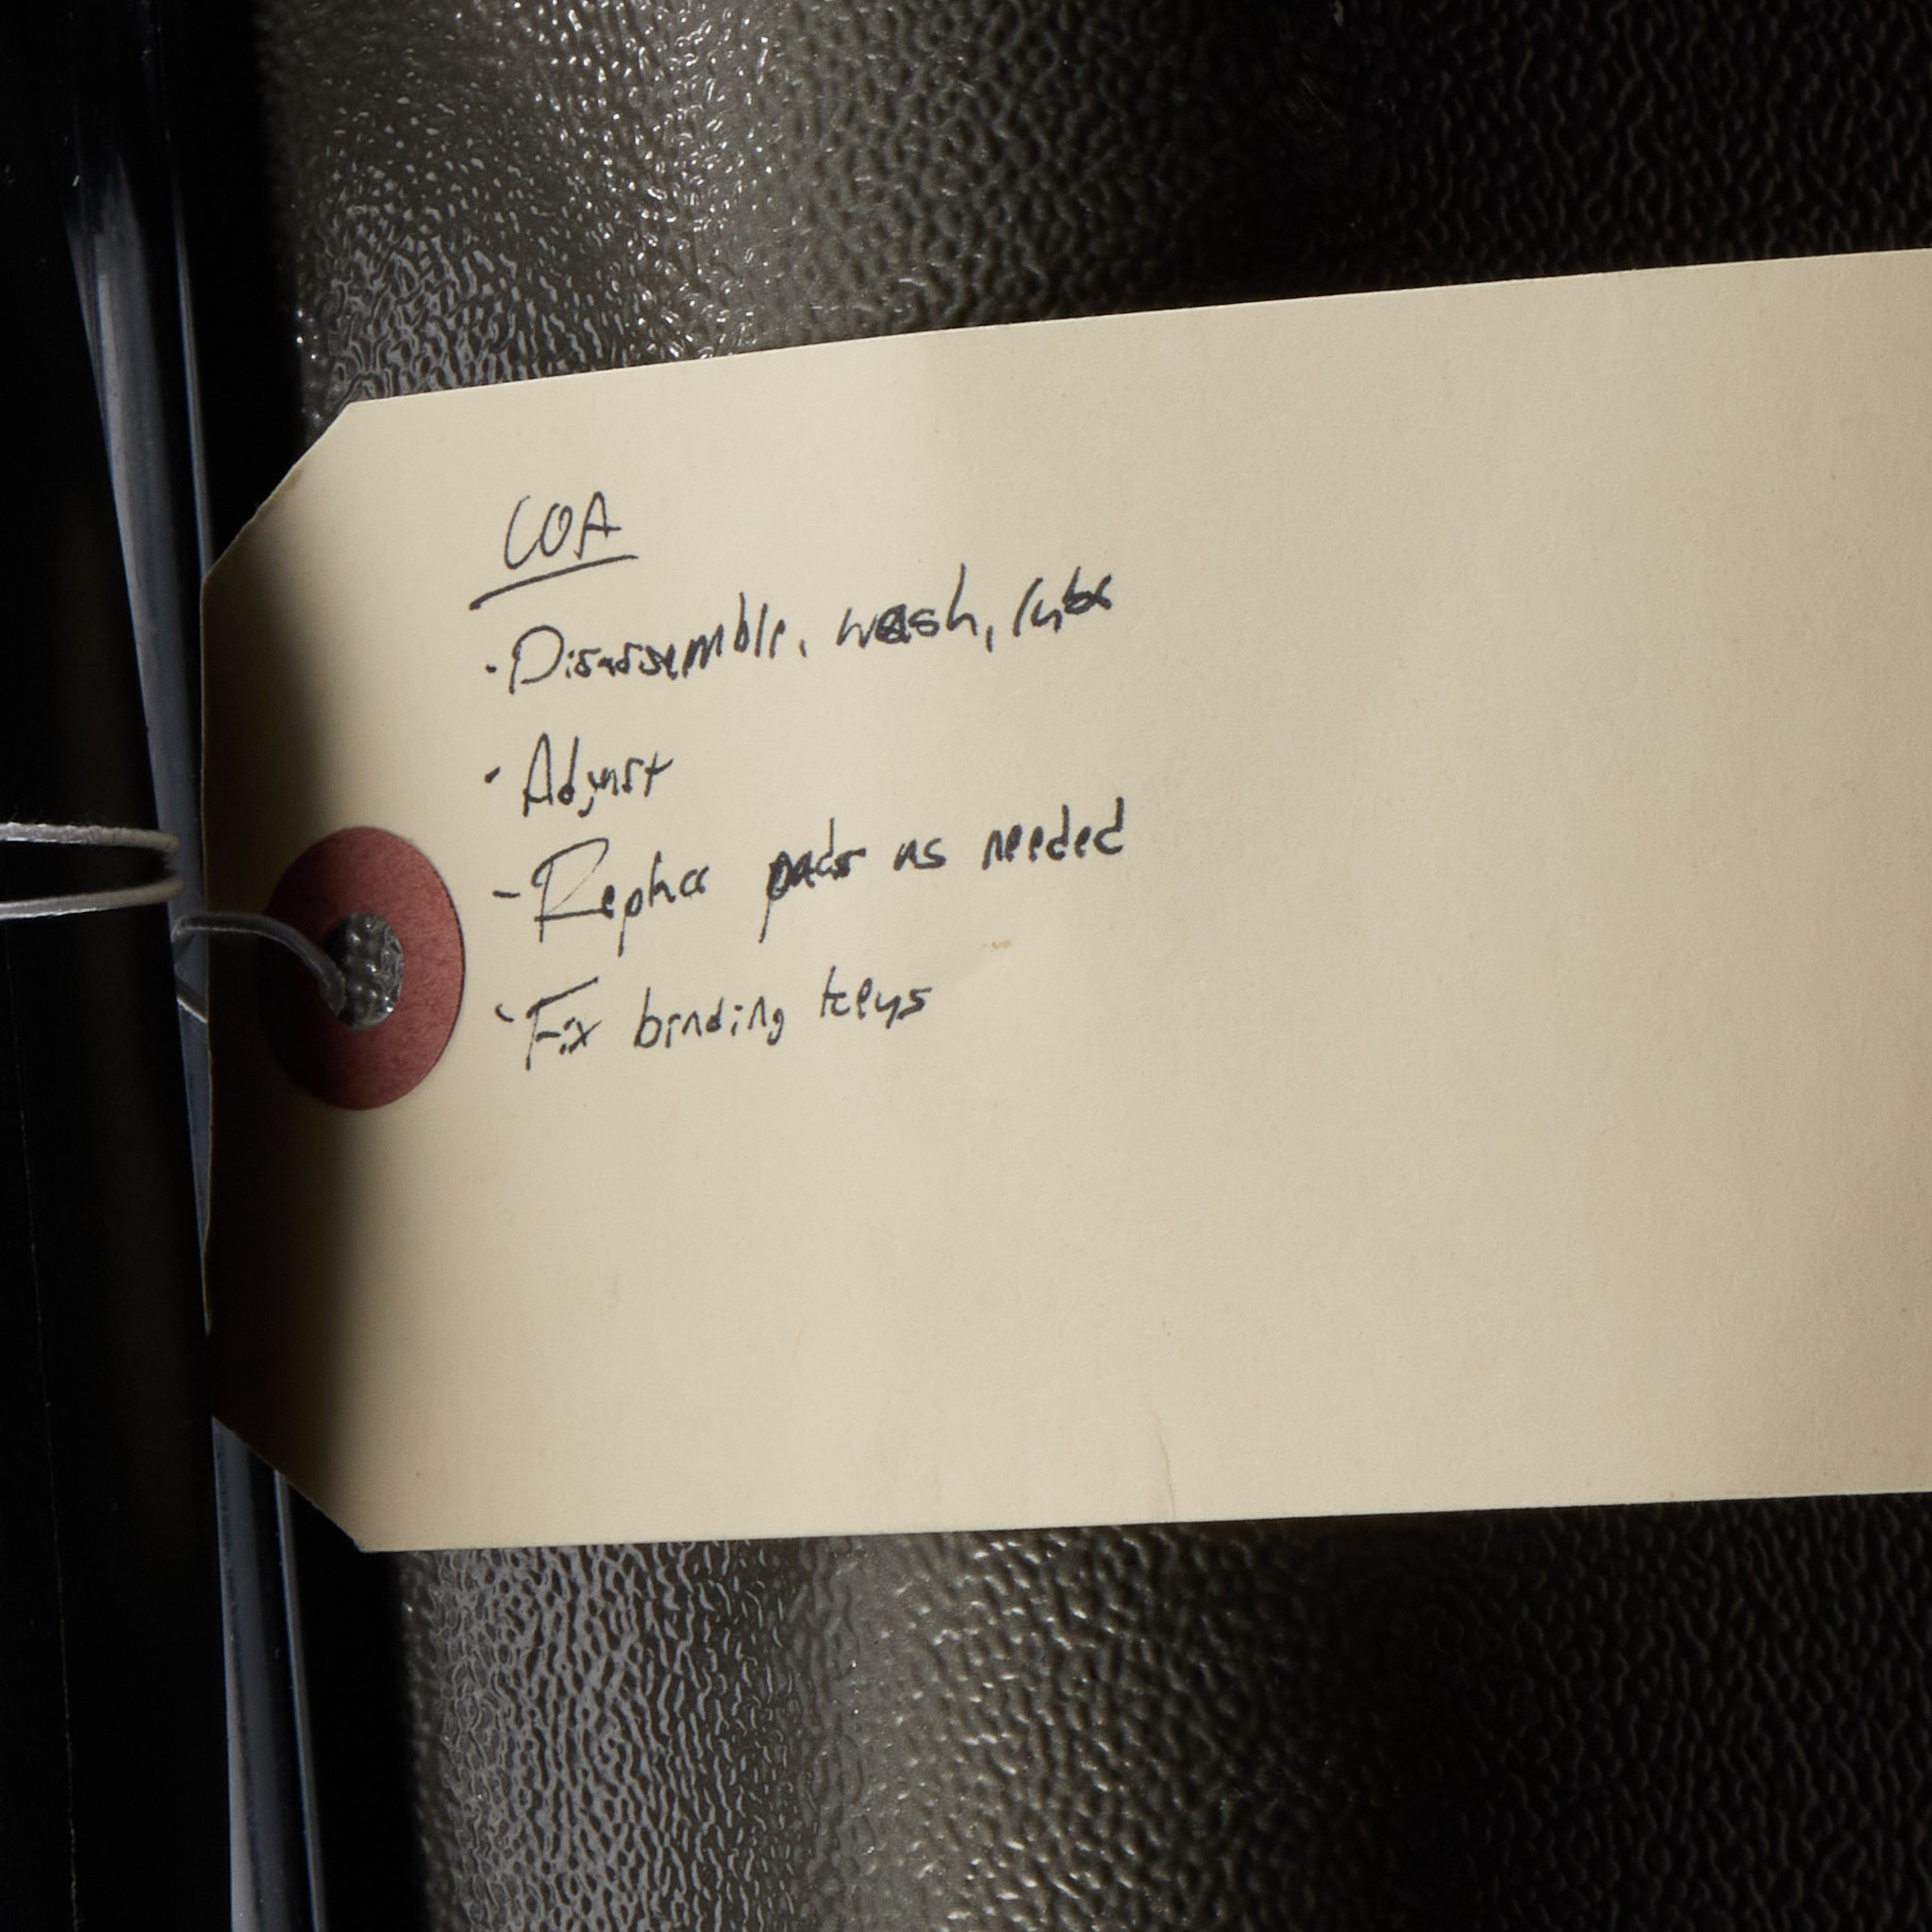 COA
· Disassemble, wash, lube
· Adjust
- Replace pads as needed
· Fix binding keys